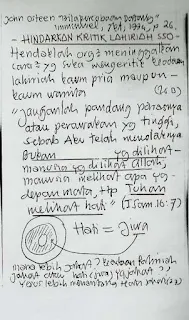 John Osteen "Bila pencobaan datang"
Immanuel, Jkt, 1994, p 26.
- HINDARKAN KRITIK LAHIRIAH SSO -
Hendaklah org² meninggalkan
cara² yg suka mengeritik keadaan
lahiriah kaum pria maupun
kaum wanita
"Janganlah pandang parasnya
atau perawakan yg tinggi,
sebab Aku telah menolaknya
Bukan yg dilihat
manusia yg dilihat Allah,
manusia melihat apa yg
depan mata, ttp Tuhan
melihat hati" (I Sam 16:7)
Hati = Jiwa
mana lebih jahat? Keadaan lahiriah
jahat atau hati (jiwa) yg jahat?
Yesus lebih menentang